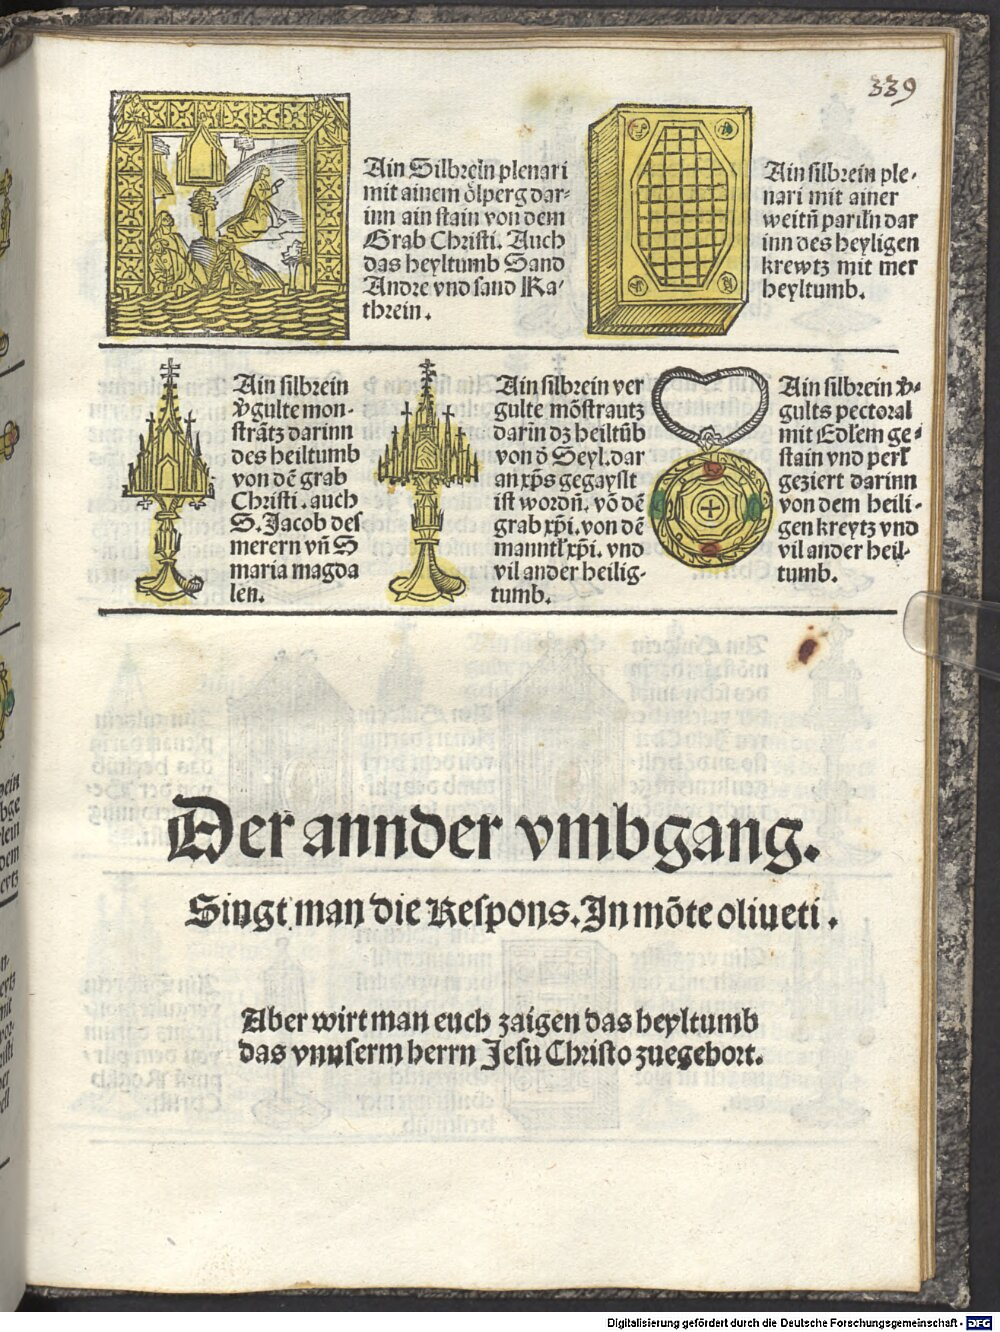 339
Ain Silbrein plenari
mit ainem ölperg dar-
inn ain stain von dem
Grab Christi. Auch
das heyltumb Sand
Andre vnd sand Ka-
threin.
Ain silbrein ple-
nari mit ainer
weitñ parilñ dar
inn des heyligen
krewtz mit mer
heyltumb.
Ain silbrein
v̄gulte mon-
strātz darinn
des heiltumb
von dē grab
Christi. auch
S. Jacob des
merern vñ S
maria magda
len.
Ain silbrein ver
gulte mōstrantz
darīn dz heiltūb
von ō Seyl. dar
an xp̄s gegayslt
ist wordñ. vō dē
grab xp̄i. von dē
manntl xp̄i. vnd
vil ander heilig-
tumb.
Ain silbrein v̄-
gults pectoral
mit Edlem ge-
stain vnd perl
geziert darinn
von dem heili-
gen kreytz vnd
vil ander heil-
tumb.
Der annder vmbgang.
Singt man die Respons. In mōte oliueti.
Aber wirt man euch zaigen das heyltumb
das vnnserm herrn Jesu Christo zuegehort.
Digitalisierung gefördert durch die Deutsche Forschungsgemeinschaft - DFG